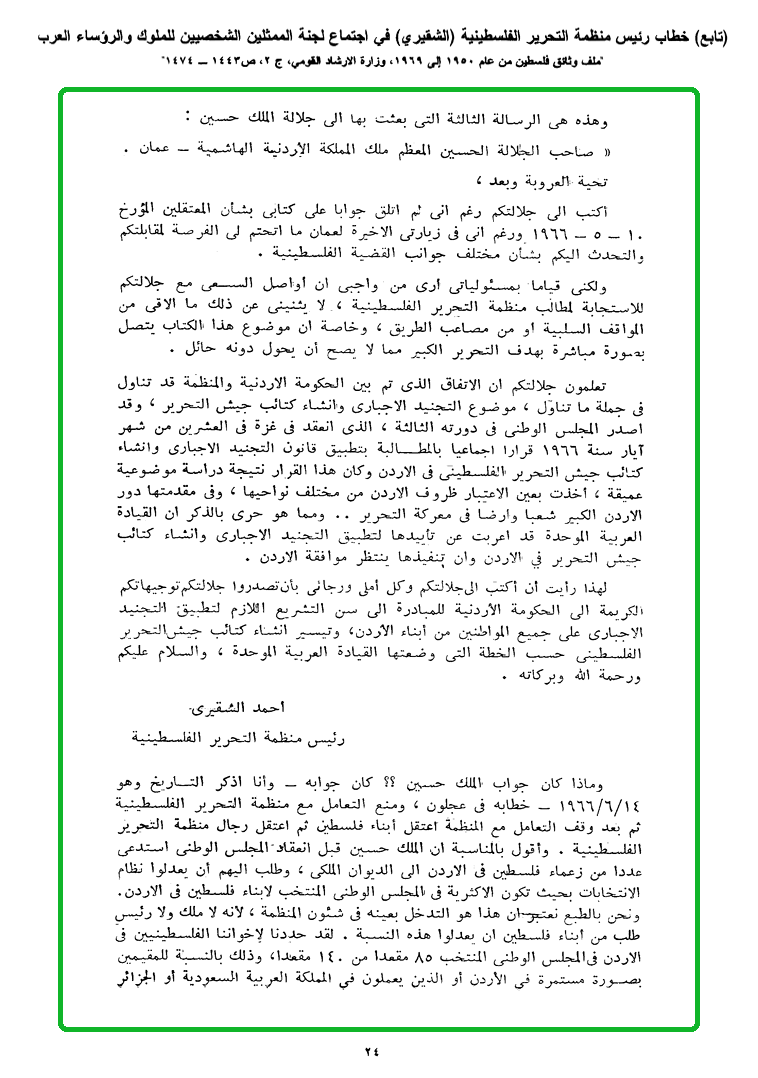 (تابع) خطاب رئيس منظمة التحرير الفلسطينية (الشقيري) في اجتماع لجنة الممثلين الشخصيين للملوك والرؤساء العرب
"ملف وثائق فلسطين من عام ١٩٥٠ إلى ١٩٦٩، وزارة الارشاد القومي، ج ٢، ص١٤٤٣ – ١٤٧٤"
وهذه هى الرسالة الثالثة التى بعثت بها الى جلالة الملك حسين :
« صاحب الجلالة الحسين المعظم ملك المملكة الأردنية الهاشمية – عمان .
تحية العروبة وبعد ،
أكتب الى جلالتكم رغم انى لم اتلق جوابا على كتابى بشأن المعتقلين المؤرخ
١٠ – ٥ – ١٩٦٦ ورغم انى فى زيارتى الاخيرة لعمان ما اتحتم لى الفرصة لمقابلتكم
والتحدث اليكم بشأن مختلف جوانب القضية الفلسطينية .
ولكنى قياما بمسئولياتى أرى من واجبى ان أواصل السعى مع جلالتكم
للاستجابة لمطالب منظمة التحرير الفلسطينية ، لا يثنينى عن ذلك ما الاقى من
المواقف السلبية او من مصاعب الطريق ، وخاصة ان موضوع هذا الكتاب يتصل
بصورة مباشرة بهدف التحرير الكبير مما لا يصح أن يحول دونه حائل .
تعلمون جلالتكم ان الاتفاق الذى تم بين الحكومة الاردنية والمنظمة قد تناول
فى جملة ما تناول ، موضوع التجنيد الاجبارى وانشاء كتائب جيش التحرير ، وقد
اصدر المجلس الوطنى فى دورته الثالثة ، الذى انعقد فى غزة فى العشرين من شهر
آيار سنة ١٩٦٦ قرارا اجماعيا بالمطالبة بتطبيق قانون التجنيد الاجبارى وانشاء
كتائب جيش التحرير الفلسطينى فى الاردن وكان هذا القرار نتيجة دراسة موضوعية
عميقة ، أخذت بعين الاعتبار ظروف الاردن من مختلف نواحيها ، وفى مقدمتها دور
الاردن الكبير شعبا وارضا فى معركة التحرير .. ومما هو حرى بالذكر ان القيادة
العربية الموحدة قد اعربت عن تأييدها لتطبيق التجنيد الاجبارى وانشاء كتائب
جيش التحرير في الاردن وان تنفيذها ينتظر موافقة الاردن .
لهذا رأيت أن أكتب الى جلالتكم وكل أملى ورجائى بأن تصدروا جلالتكم توجيهاتكم
الكريمة الى الحكومة الأردنية للمبادرة الى سن التشريع اللازم لتطبيق التجنيد
الاجبارى على جميع المواطنين من أبناء الأردن، وتيسير انشاء كتائب جيش التحرير
الفلسطينى حسب الخطة التى وضعتها القيادة العربية الموحدة ، والسلام عليكم
ورحمة الله وبركاته .
احمد الشقيرى
رئيس منظمة التحرير الفلسطينية
وماذا كان جواب الملك حسين ؟؟ كان جوابه – وأنا اذكر التاريخ وهو
١٩٦٦/٦/١٤ – خطابه فى عجلون ، ومنع التعامل مع منظمة التحرير الفلسطينية
ثم بعد وقف التعامل مع المنظمة اعتقل أبناء فلسطين ثم اعتقل رجال منظمة التحرير
الفلسطينية . وأقول بالمناسبة ان الملك حسين قبل انعقاد المجلس الوطنى استدعى
عددا من زعماء فلسطين فى الاردن الى الديوان الملكى ، وطلب اليهم أن يعدلوا نظام
الانتخابات بحيث تكون الاكثرية فى المجلس الوطنى المنتخب لابناء فلسطين فى الاردن.
ونحن بالطبع نعتبر ان هذا هو التدخل بعينه فى شئون المنظمة ، لأنه لا ملك ولا رئيس
طلب من أبناء فلسطين ان يعدلوا هذه النسبة . لقد حددنا لإخواننا الفلسطينيين فى
الاردن فى المجلس الوطنى المنتخب ٨٥ مقعدا من ١٤٠ مقعدا، وذلك بالنسبة للمقيمين
بصورة مستمرة فى الأردن أو الذين يعملون في المملكة العربية السعودية أو الجزائر
٢٤